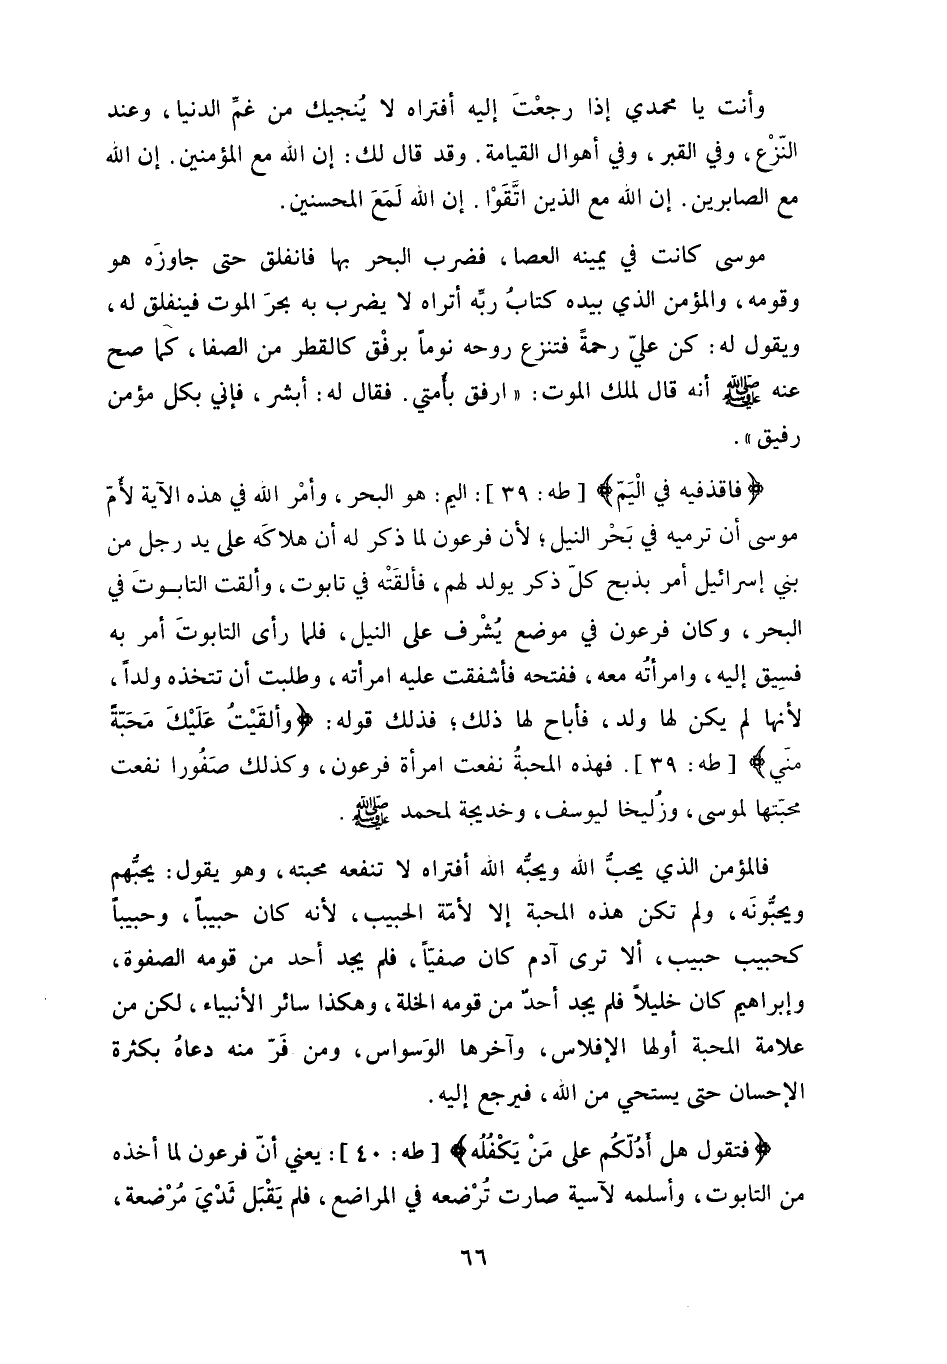 وأنت يا محمدي إذا رجعْتَ إليه أفتراه لا يُنجيك من غمِّ الدنيا، وعند
النّزْع، وفي القبر، وفي أهوال القيامة. وقد قال لك: إن الله مع المؤمنين. إن الله
مع الصابرين. إن الله مع الذين اتَّقَوْا. إن الله لَمَعَ المحسنين.
موسى كانت في يمينه العصا، فضرب البحر بها فانفلق حتى جاوزَه هو
وقومه، والمؤمن الذي بيده كتابُ ربِّه أتراه لا يضرب به بحرَ الموت فينفلق له،
ويقول له: كن عليّ رحمةً فتنزع روحه نوماً برفْق كالقطر من الصفا، كما صح
عنه ﷺ أنه قال لملك الموت: «ارفق بأُمتي. فقال له: أبشر، فإني بكل مؤمن
رفيق».
﴿فاقذفيه في الْيَمّ﴾ [طه: ٣٩]: اليم: هو البحر، وأمْر الله في هذه الآية لأُمّ
موسى أن ترميه في بَحْر النيل؛ لأن فرعون لما ذكر له أن هلاكَه على يد رجل من
بني إسرائيل أمر بذبح كلّ ذكر يولد لهم، فألقَتْه في تابوت، وألقت التابوتَ في
البحر، وكان فرعون في موضع يُشْرف على النيل، فلما رأى التابوتَ أمر به
فسِيق إليه، وامرأتُه معه، ففتحه فأشفقت عليه امرأته، وطلبت أن تتخذه ولداً،
لأنها لم يكن لها ولد، فأباح لها ذلك؛ فذلك قوله: ﴿وألقَيْتُ عَلَيْكَ مَحَبّةً
منَي﴾ [طه: ٣٩]. فهذه المحبةُ نفعت امرأة فرعون، وكذلك صَفُورا نفعت
محبّتها لموسى، وزُليخا ليوسف، وخديجة لمحمد ﷺ.
فالمؤمن الذي يحبُّ الله ويحبُّه الله أفتراه لا تنفعه محبته، وهو يقول: يحبُّهم
ويحبُّونَه، ولم تكن هذه المحبة إلا لأمّة الحبيب، لأنه كان حبيباً، وحبيباً
كحبيب حبيب، ألا ترى آدم كان صفيّاً، فلم يجد أحد من قومه الصفوة،
وإبراهيم كان خليلاً فلم يجد أحدٌ من قومه الخلة، وهكذا سائر الأنبياء، لكن من
علامة المحبة أولها الإفلاس، وآخرها الوَسواس، ومن فَرّ منه دعاهُ بكثرة
الإحسان حتى يستحي من الله، فيرجع إليه.
﴿فتقول هل أَدُلّكُم على مَنْ يَكْفُلُه﴾ [طه: ٤٠]: يعني أنّ فرعون لما أخذه
من التابوت، وأسلمه لآسية صارت تُرْضعه في المراضع، فلم يَقْبَل ثَدْيَ مُرْضعة،
٦٦